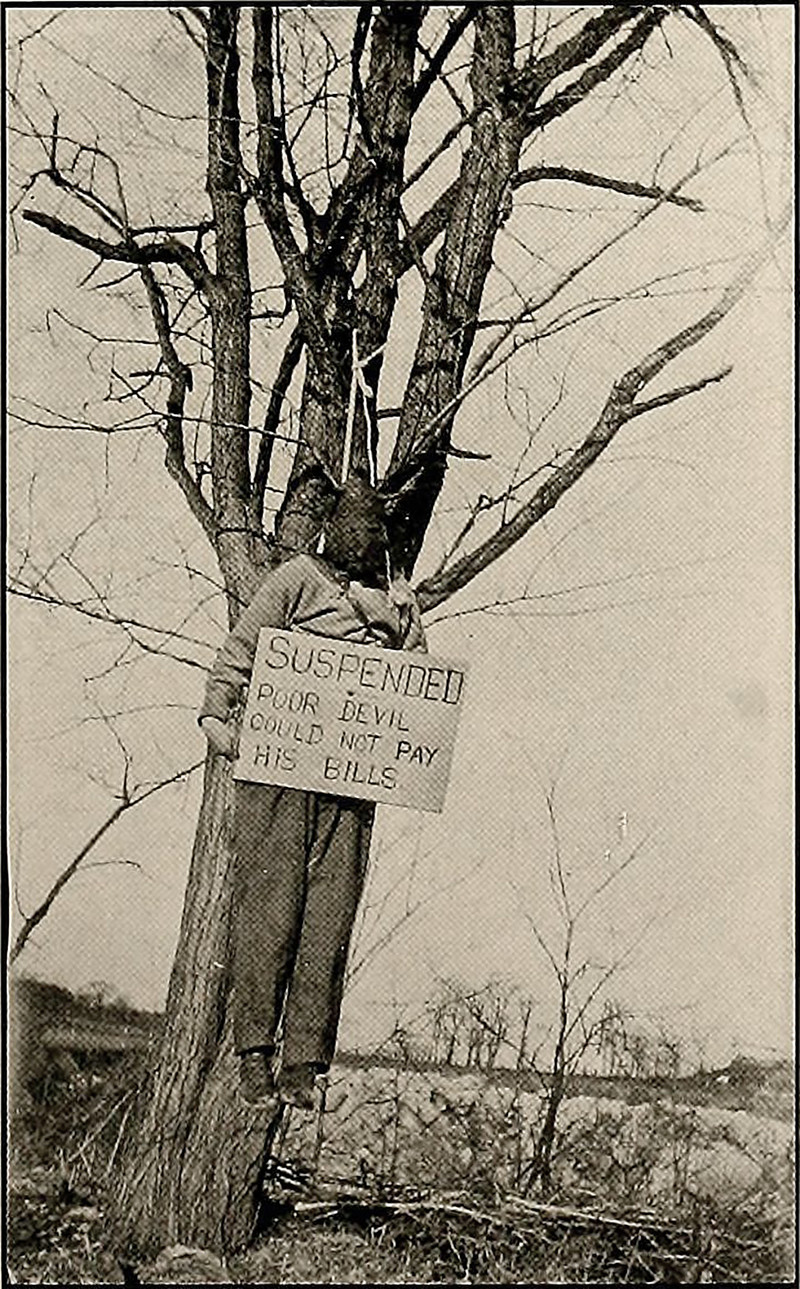 SUSPENDED
POOR DEVIL
COULD NOT PAY
HIS BILLS